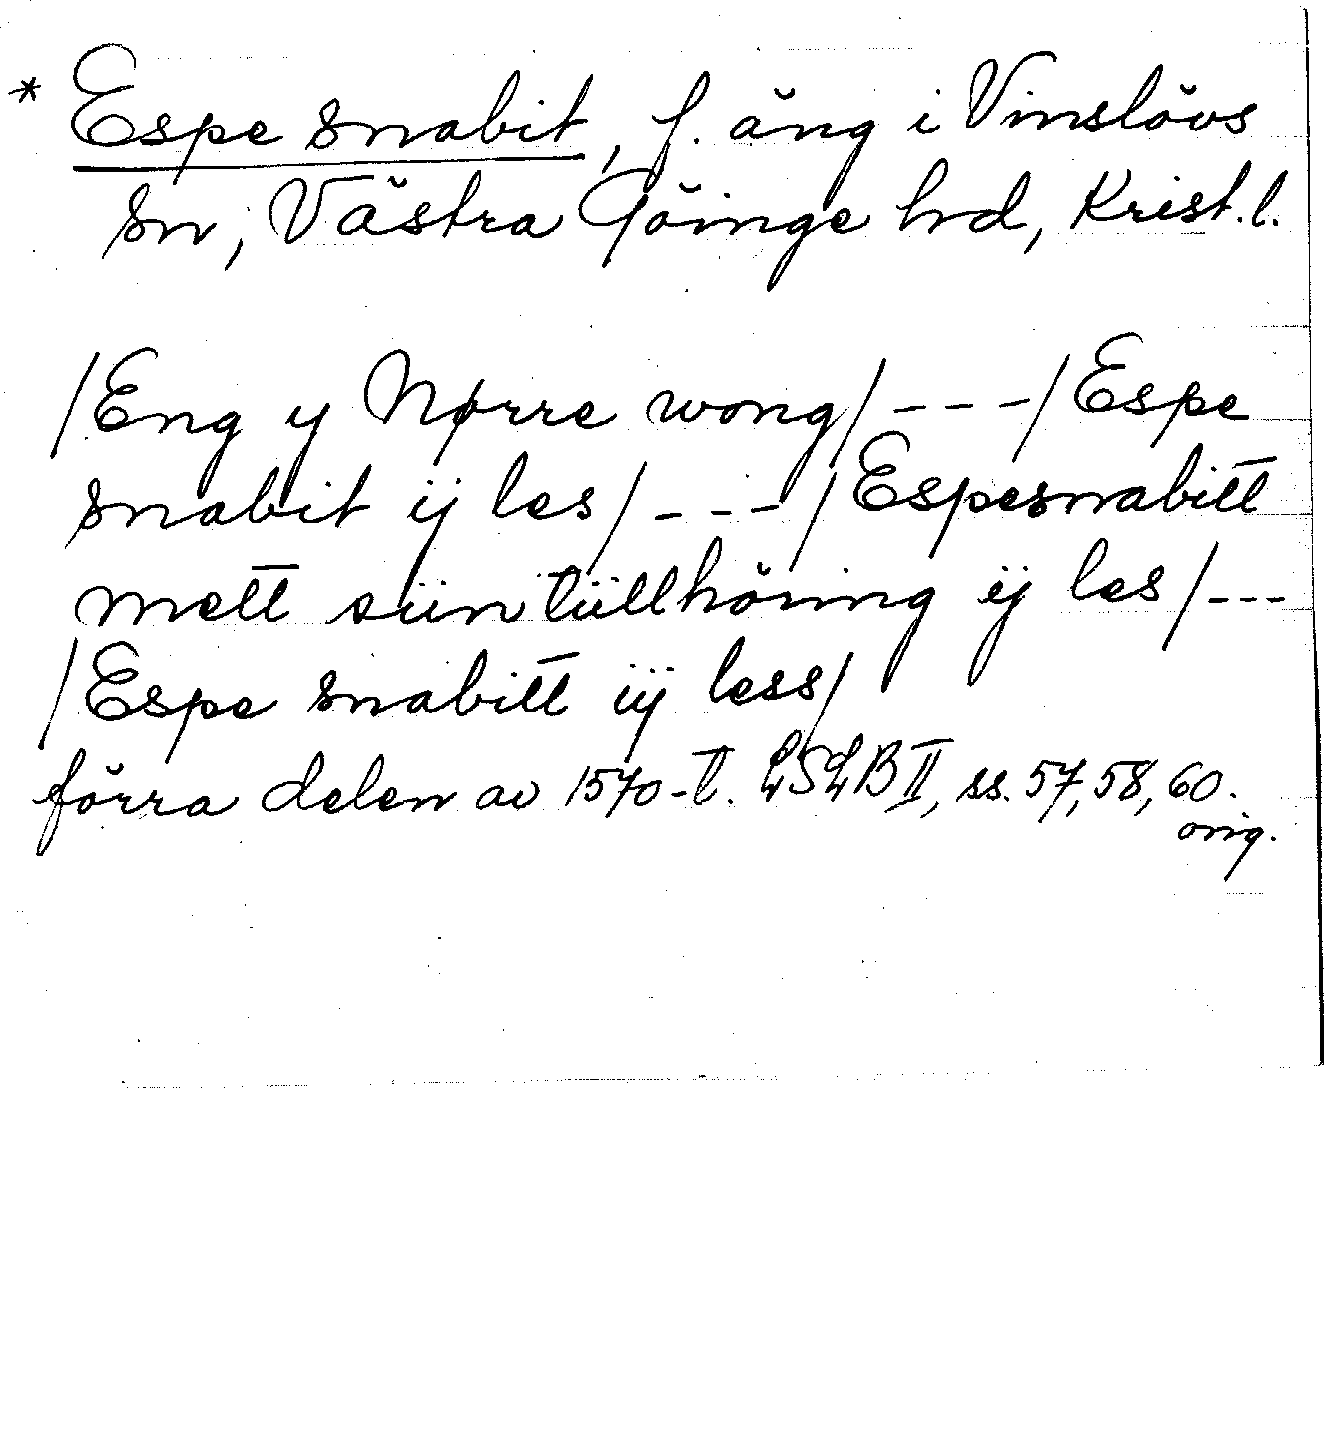 * Espe snabit, f. äng i Vinslövs
sn, Västra Göinge hd, Krist. l.
/Eng y Nørre wong/ - - - /Espe
snabit ij les/ - - - /Espesnabitt
mett siin tüllhöring ij les/ - - -
/Espe snabitt iij less/
förra delen av 1570-t. LSLB II, ss. 57, 58, 60.
orig.